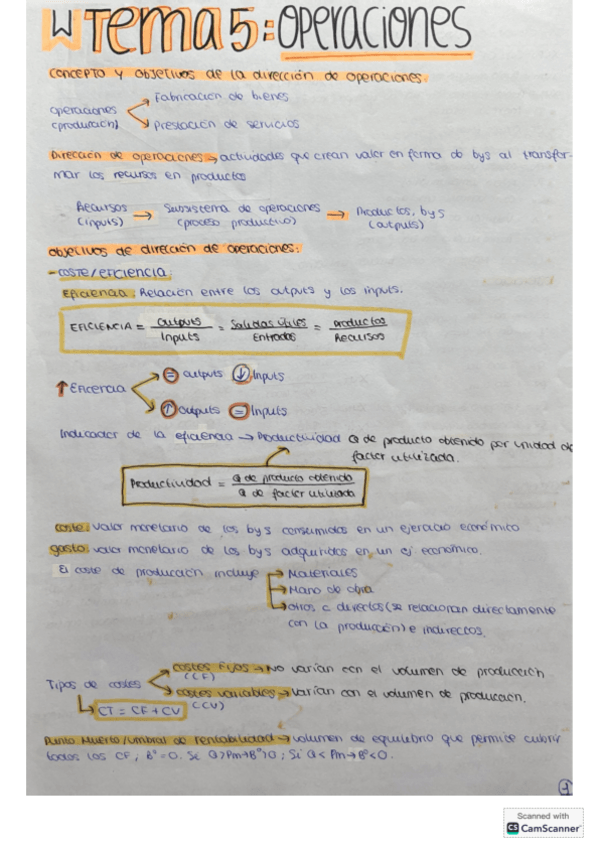 Tema 5: Operaciones
Concepto y objetivos de la dirección de operaciones.
Fabricación de bienes
operaciones
(producción)
Prestación de servicios
Dirección de operaciones → actividades que crean valor en forma de bys al transfor-
mar los recursos en productos
Recursos → Subsistema de operaciones → Productos, bys
(inputs) (proceso productivo) (outputs)
objetivos de dirección de operaciones:
- COSTE/EFICIENCIA:
Eficiencia: Relación entre los outputs y los inputs.
EFICIENCIA = Outputs / Inputs = Salidas útiles / Entradas = Productos / Recursos
↑ Eficiencia
= outputs ↓ Inputs
↑ Outputs = Inputs
Indicador de la eficiencia → Productividad Q de producto obtenido por unidad de
factor utilizada.
Productividad = Q de producto obtenido / Q de factor utilizada
coste: valor monetario de los bys consumidos en un ejercicio económico
gasto: valor monetario de los bys adquiridos en un ej económico.
El coste de producción incluye → Materiales
→ Mano de obra
→ otros c directos (se relacionan directamente
con la producción) e indirectos.
costes fijos → No varían con el volumen de producción
(CF)
Tipos de costes
costes variables → varían con el volumen de producción.
(CV)
CT = CF + CV
Punto Muerto/Umbral de rentabilidad → volumen de equilibrio que permite cubrir
todos los CF, Bº = 0. Si Q > Pm → Bº > 0; Si Q < Pm → Bº < 0.
1
Scanned with
CS CamScanner